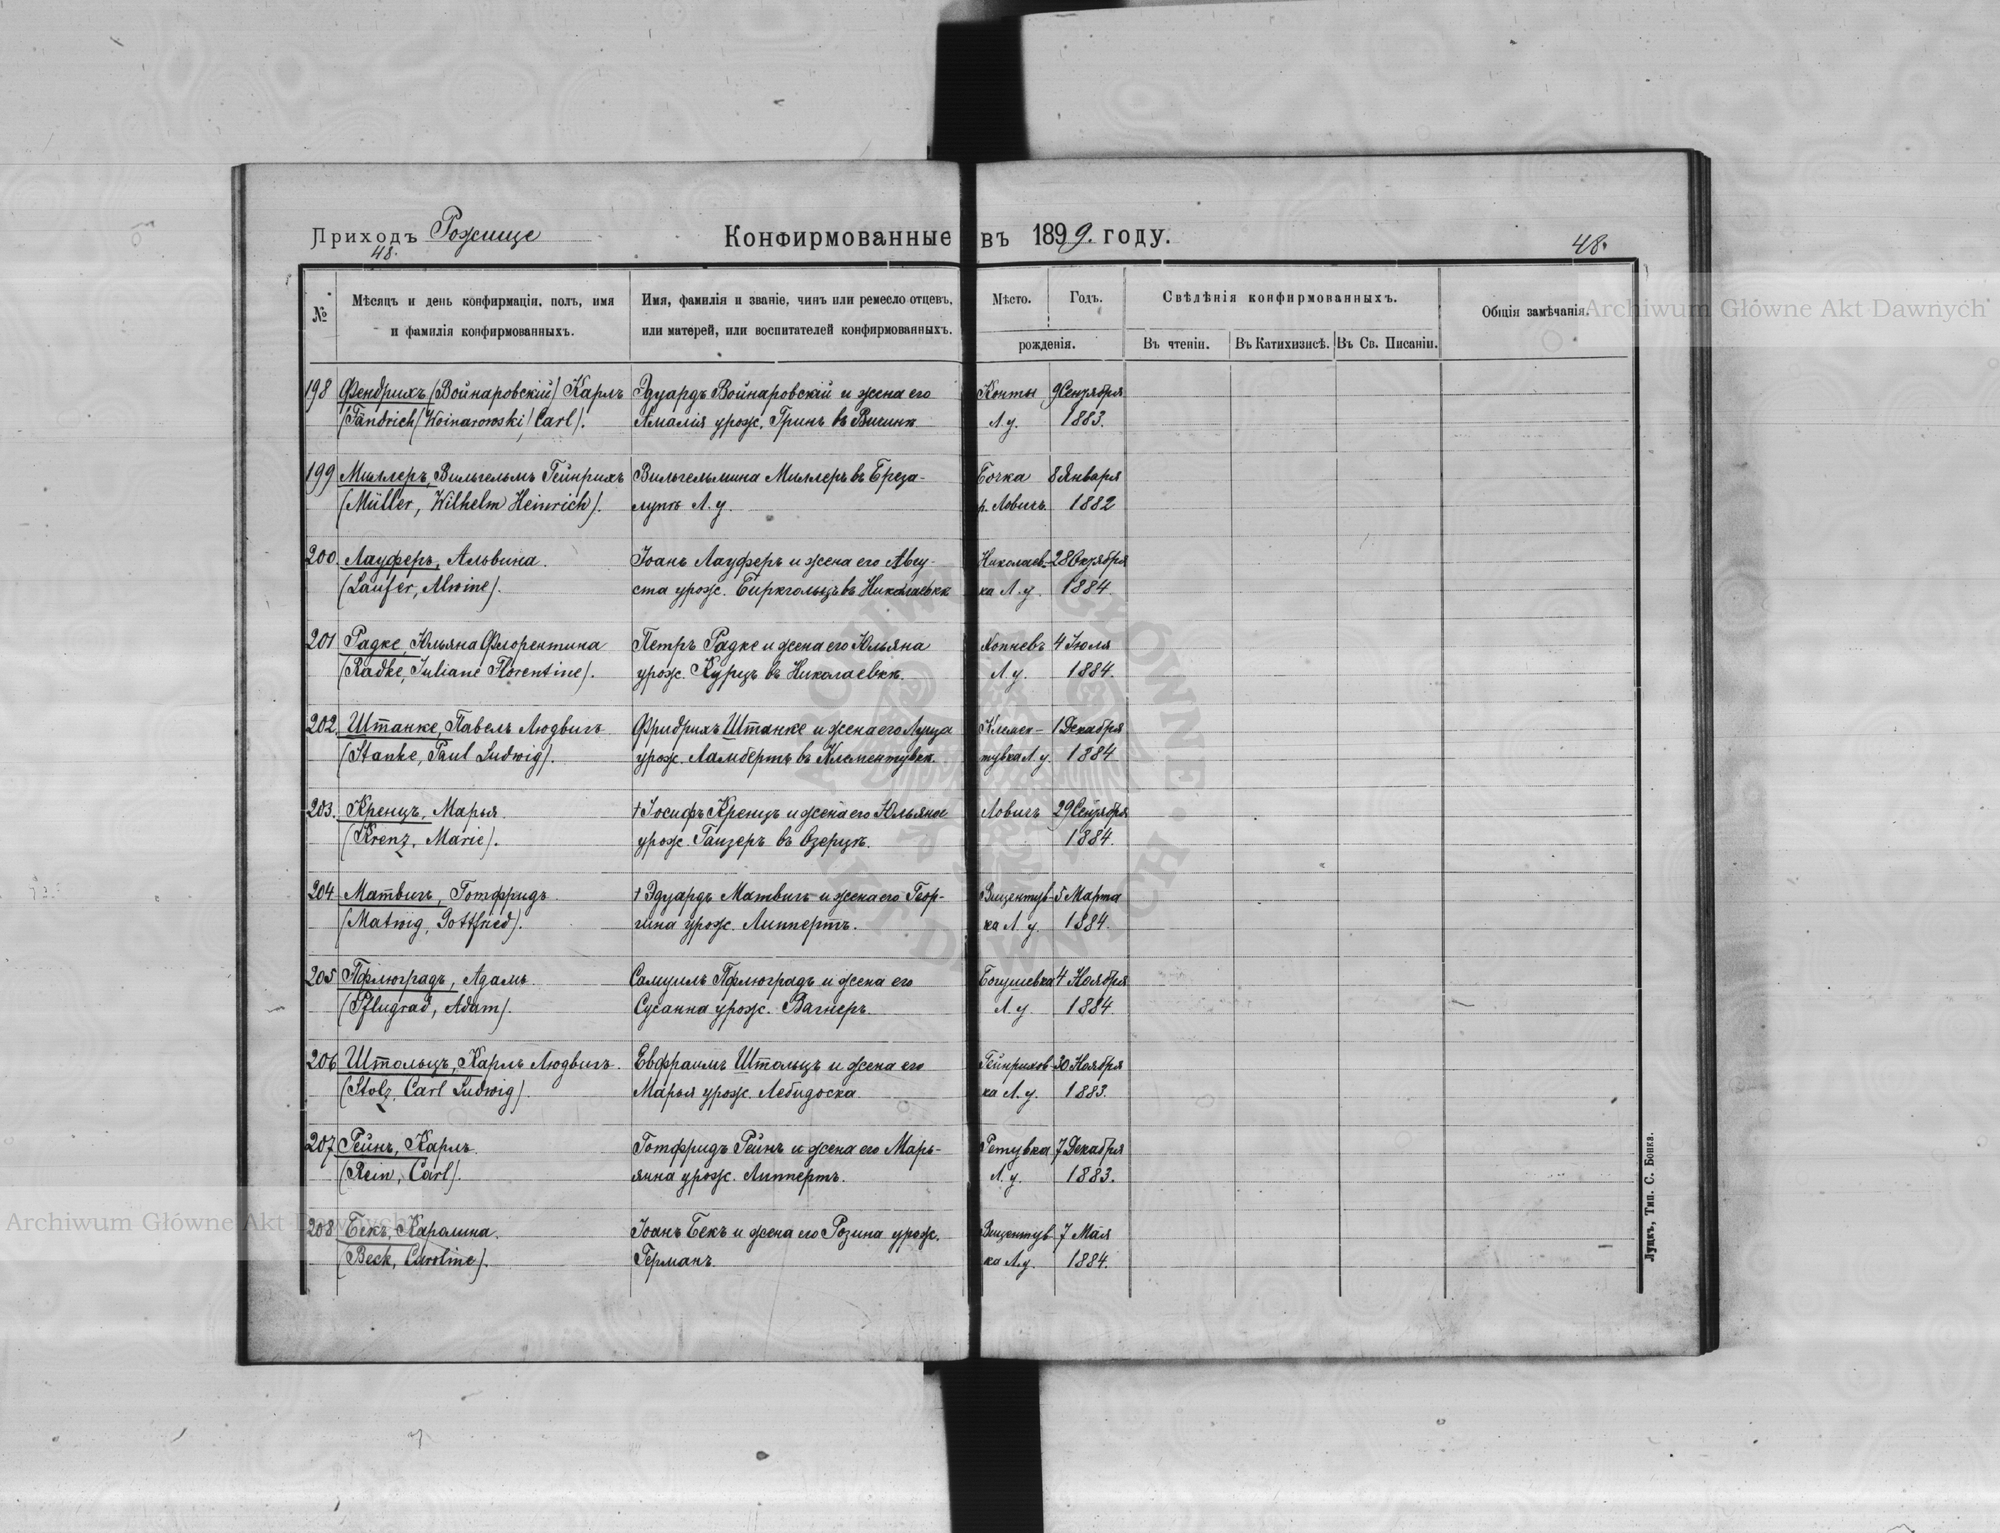 Приходъ Рожище
48.
Конфирмованные въ 1899. году.
48.
№
Мѣсяцъ и день конфирмаціи, полъ, имя
и фамилія конфирмованныхъ.
Имя, фамилія и званіе, чинъ или ремесло отцевъ,
или матерей, или воспитателей конфирмованныхъ.
Мѣсто.
Годъ.
рожденія.
Свѣдѣнія конфирмованныхъ.
Въ чтеніи.
Въ Катихизисѣ.
Въ Св. Писаніи.
Общія замѣчанія.
198 Фендрихъ (Войнаровскій) Карлъ Эдуардъ Войнаровскій и жена его Копты 9 Сентября
(Fändrich (Woinarowski) Carl). Амалія урож. Гринъ въ Л.у. 1883.
199 Миллеръ, Вильгельмъ Гейнрихъ Вильгельмина Миллеръ въ Бреза- Бочка 8 Января
(Müller, Wilhelm Heinrich). лупѣ Л.у. р. Ловичъ 1882
200. Лауферъ, Альвина. Іоанъ Лауферъ и жена его Авгу- Николаев- 28 Октября
(Laufer, Alwine). ста урож. Биркгольцъ въ Николаевкѣ ка Л.у. 1884.
201 Радке, Юльяна Флорентина Петръ Радке и жена его Юльяна Копчевъ 4 Іюля
(Radke, Juliane Florentine). урож. Курцъ въ Николаевкѣ. Л.у. 1884.
202. Штанке, Павелъ Людвигъ Фридрихъ Штанке и жена его Луиза Клемен- 1 Декабря
(Stanke, Paul Ludwig). урож. Ламбертъ въ Клементувкѣ тувка Л.у. 1884
203. Кренцъ, Марья † Іосифъ Кренцъ и жена его Юльяна Ловичъ 29 Сентября
(Krenz, Marie). урож. Гаизеръ въ Озерцѣ. 1884.
204 Матвигъ, Готфридъ † Эдуардъ Матвигъ и жена его Геор- Вицентув- 5 Марта
(Matwig, Gottfried). гина урож. Липпертъ. ка Л.у. 1884.
205 Пфлюградъ, Адамъ Самуилъ Пфлюградъ и жена его Богушевка 4 Ноября
(Pflugrad, Adam). Сусанна урож. Вагнеръ Л.у. 1884.
206 Штольцъ, Карлъ Людвигъ. Евфраимъ Штольцъ и жена его Гейнрихов- 30 Ноября
(Stolz, Carl Ludwig). Марья урож. Лебидоска ка Л.у. 1883.
207 Рейнъ, Карлъ Готфридъ Рейнъ и жена его Марь- Гетувка 7 Декабря
(Rein, Carl). янна урож. Липпертъ. Л.у. 1883.
208 Бекъ, Каролина. Іоанъ Бекъ и жена его Розина урож. Вицентув- 7 Мая
(Beck, Caroline). Германъ. ка Л.у. 1884.
Луцкъ, Тип. С. Бонка.
Archiwum Główne Akt Dawnych
Archiwum Główne Akt Dawnych